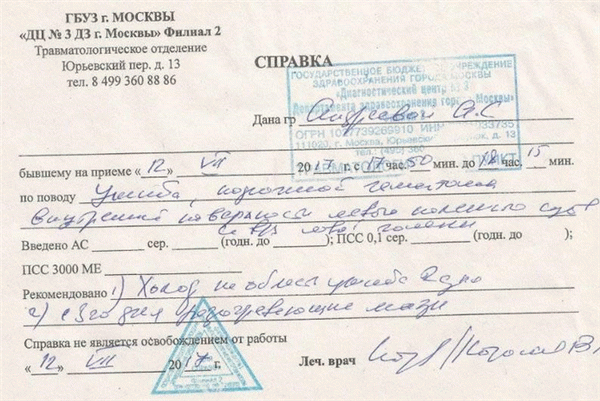 ГБУЗ г. МОСКВЫ
«ДЦ № 3 ДЗ г. Москвы» Филиал 2
Травматологическое отделение
Юрьевский пер. д. 13
тел. 8 499 360 88 86
СПРАВКА
ГОСУДАРСТВЕННОЕ БЮДЖЕТНОЕ УЧРЕЖДЕНИЕ
ЗДРАВООХРАНЕНИЯ ГОРОДА МОСКВЫ
«Диагностический центр № 3
Департамента здравоохранения города Москвы»
111020, г. Москва, Юрьевский д. 13
Дана гр
бывшему на приеме «12» VII 2017 г. с 17 час. 50 мин. до 18 час. 15 мин.
по поводу Ушиба, подкожной гематомы
внутренней поверхности левого коленного
левой голени
Введено АС сер. (годн. до ); ПСС 0,1 сер. (годн. до );
ПСС 3000 МЕ
Рекомендовано 1) Холод на область ушиба
2) с 3го дня разогревающие мази
Справка не является освобождением от работы
«12» VII 2017 г. Леч. врач
Филиал 2